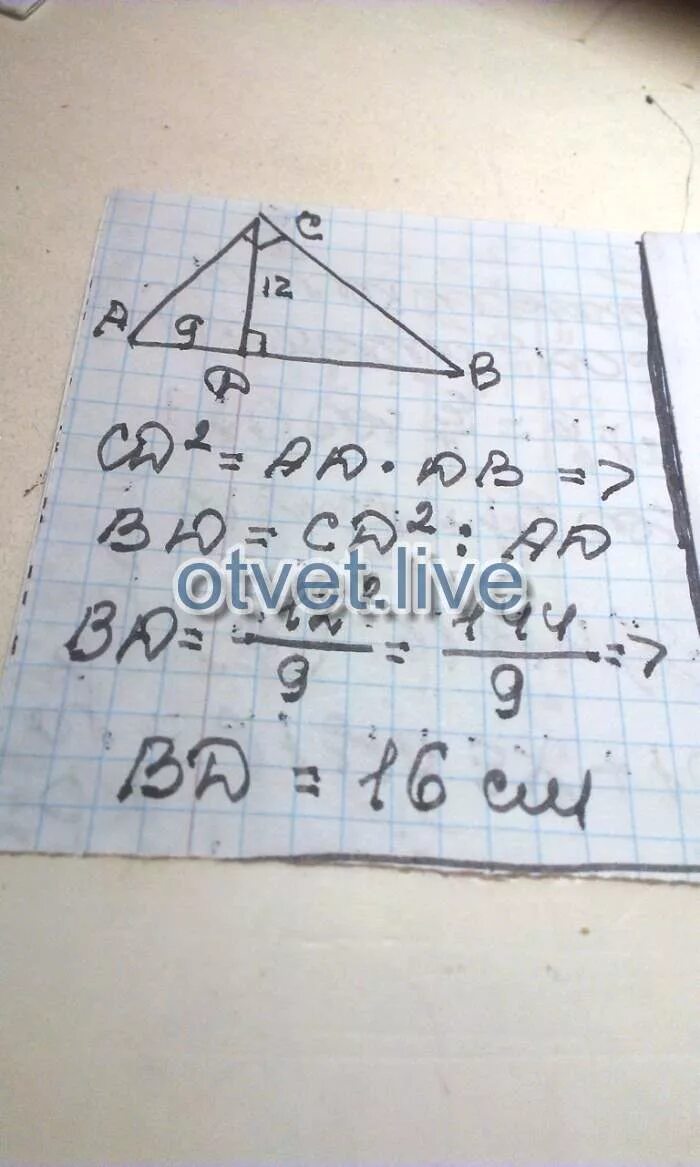 C
12
A 9
D
B
CD² = AD · DB =>
BD = CD² : AD
otvet.live
BD = 12² / 9 = 144 / 9 =>
BD = 16 см